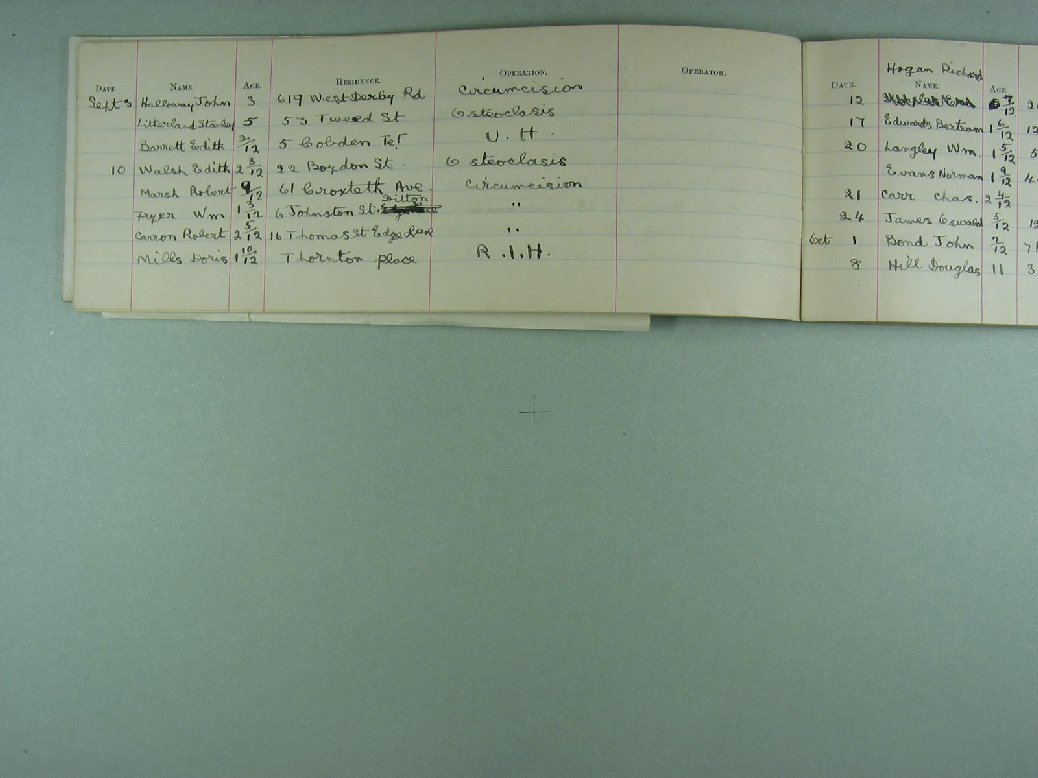 DATE NAME. AGE. RESIDENCE. OPERATION. OPERATOR.
Sept 3 Halloway John 3 619 West Derby Rd Circumcision
Litterland Stanley 5 53 Tweed St Osteoclasis
Barrett Edith 2/12 5 Cobden Te! U. H.
10 Walsh Edith 2 3/12 22 Boydon St. Osteoclasis
Marsh Robert 9/12 61 Croxteth Ave Circumcision
Ditton
Fryer Wm 1 3/12 6 Johnston St. "
Carron Robert 2 5/12 16 Thomas St Edge "
Mills Doris 1 10/12 Thornton place R. I. H.
Hogan Richard
DATE. NAME. AGE
12 7/12 2
17 Edwards Bertram 1 6/12 12
20 Langley Wm. 1 5/12 5
Evans Norman 1 9/12 4
21 Carr Chas. 2 4/12
24 James Oswald 5/12 12
Oct 1 Bond John 7/12 71
8 Hill Douglas 11 3